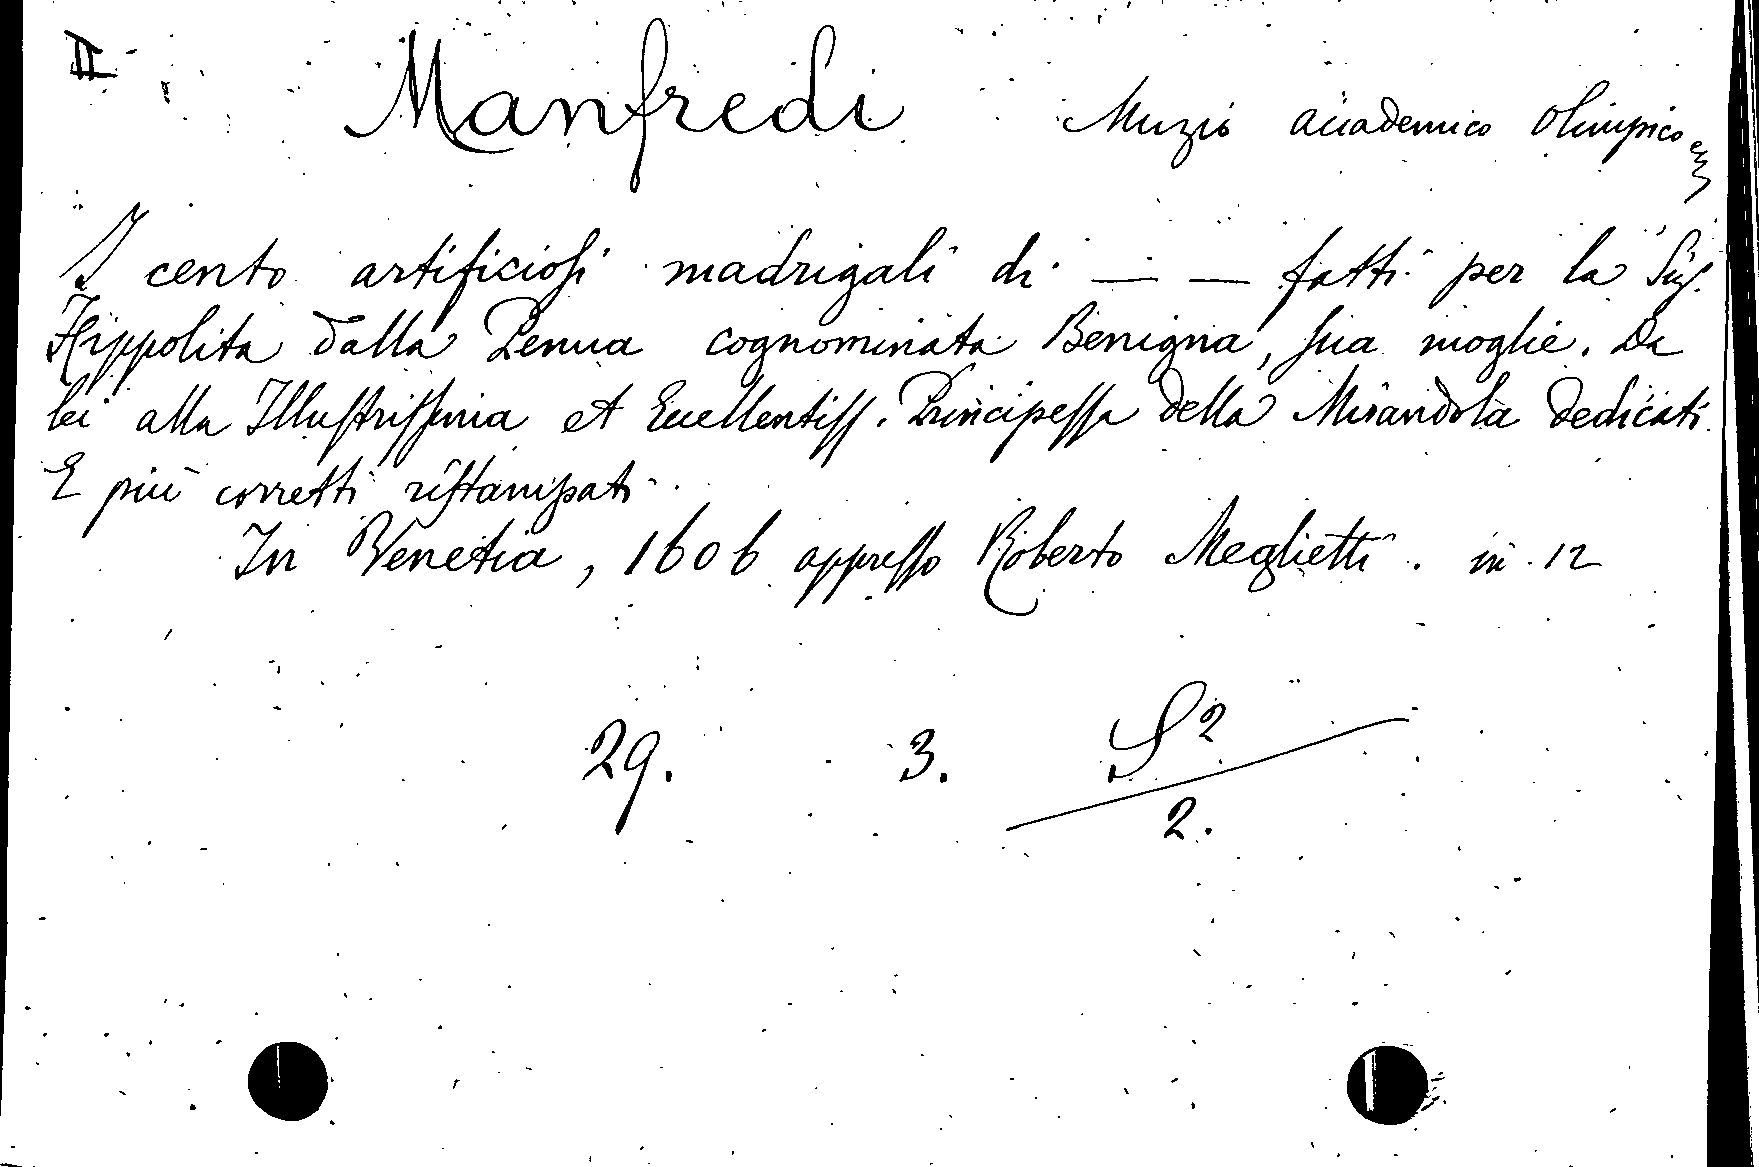 II
Manfredi Muzio accademico Olimpico etc.
I cento artificiosi madrigali di — — fatti per la Sig.
Hippolita dalla Penna cognominata Benigna, sua moglie. Da
lei alla Illustrissima et Eccellentiss. Principessa della Mirandola dedicati.
E più corretti ristampati.
In Venetia, 1606 appresso Roberto Meglietti. in 12
29. 3. S2
2.